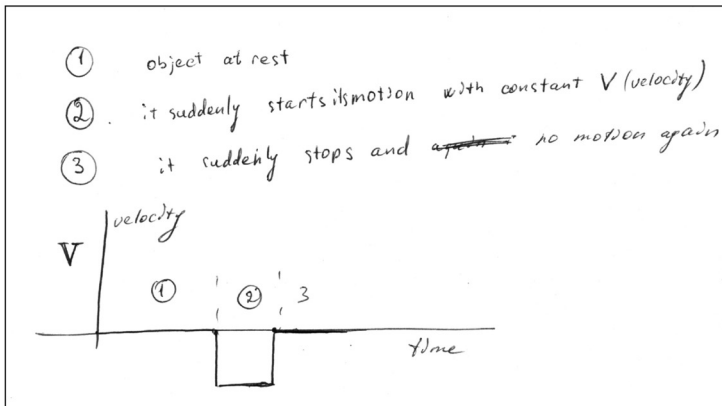 ① object at rest
② . it suddenly starts itsmotion with constant V (velocity)
③ it suddenly stops and no motion again
velocity
V
① ② 3
time